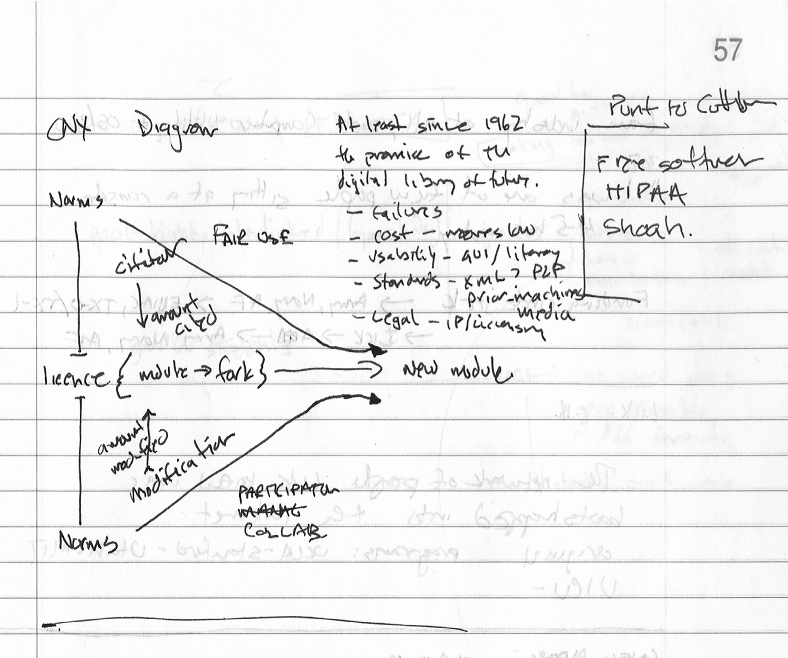 57
CNX Diagram
At least since 1962
the promise of the
digital library of future.
- Failures
- Cost - moores law
- Usability - GUI / literacy
- Standards - xml > P2P
prior machines
media
- Legal - IP/licensing
Punt to
Free software
HIPAA
Shoah.
Norms
FAIR USE
citation
amount
cited
licence { module → fork } → New module
amount
modified
modification
PARTICIPATION
COLLAB
Norms